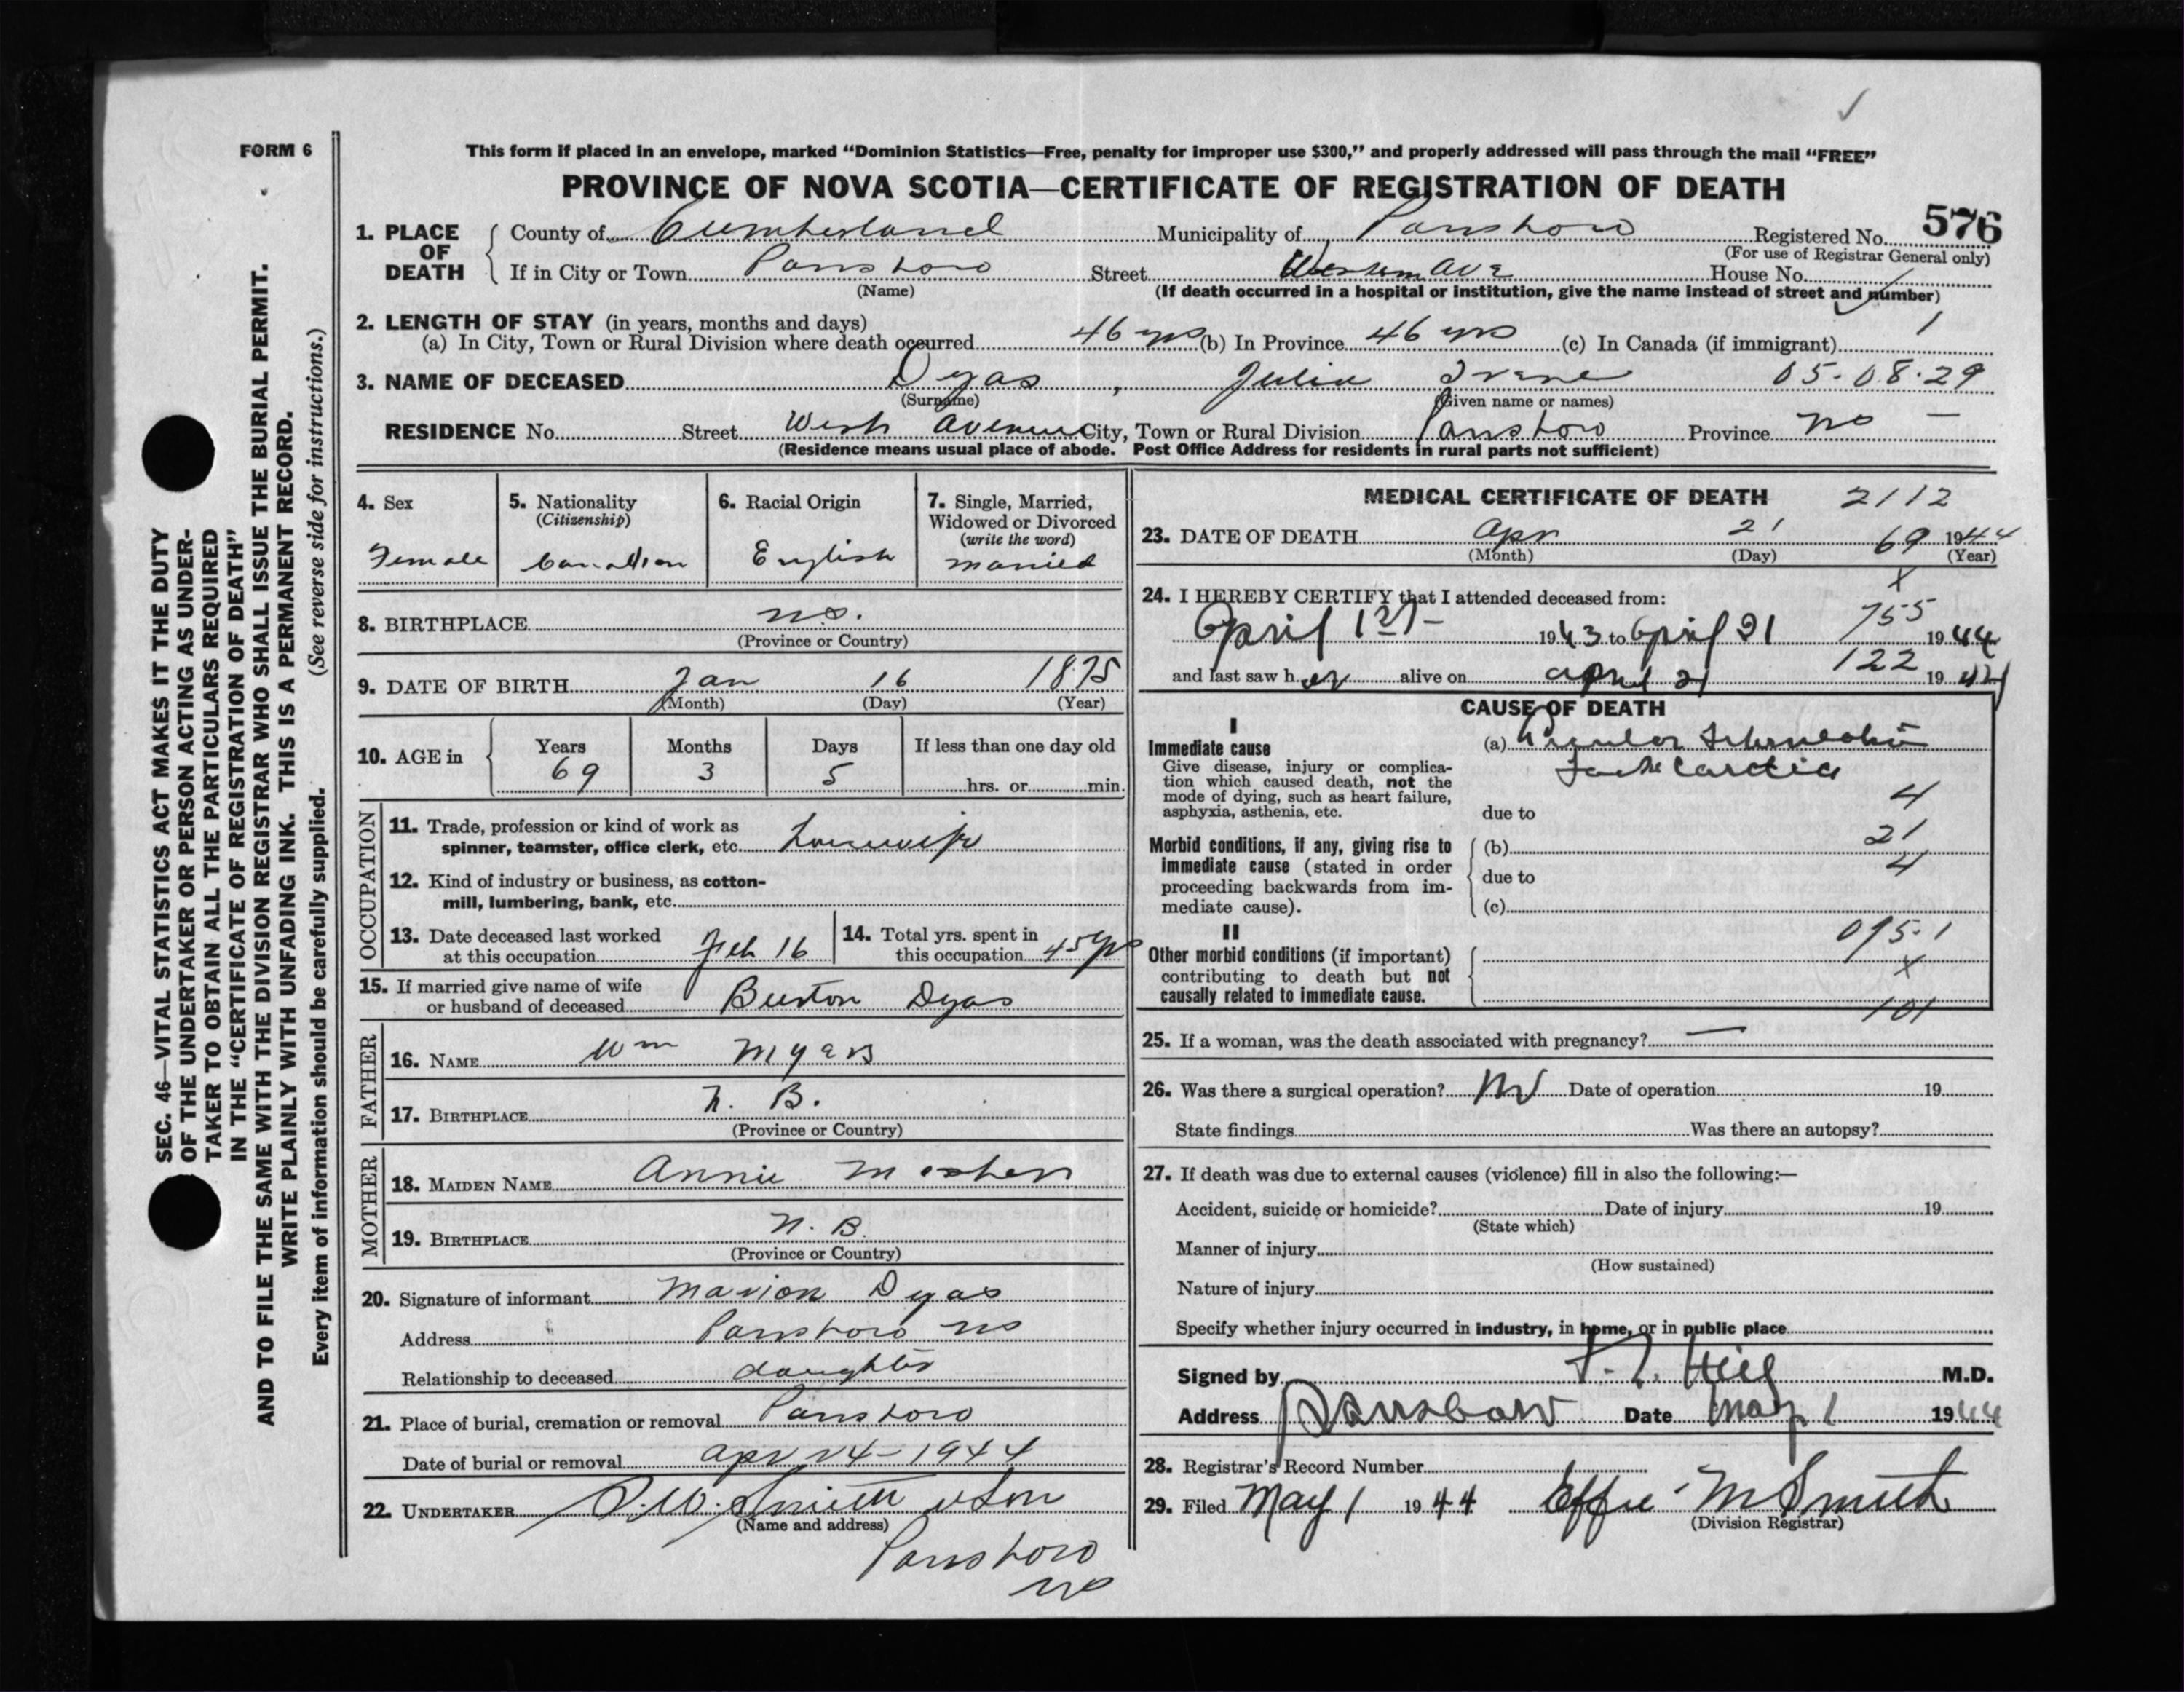 FORM 6
This form if placed in an envelope, marked “Dominion Statistics—Free, penalty for improper use $300,” and properly addressed will pass through the mail “FREE”
PROVINCE OF NOVA SCOTIA—CERTIFICATE OF REGISTRATION OF DEATH
576
1. PLACE OF DEATH
County of Cumberland Municipality of Parrsboro Registered No.
(For use of Registrar General only)
If in City or Town Parrsboro Street Western Ave House No.
(Name) (If death occurred in a hospital or institution, give the name instead of street and number)
2. LENGTH OF STAY (in years, months and days)
(a) In City, Town or Rural Division where death occurred 46 yrs (b) In Province 46 yrs (c) In Canada (if immigrant) 1
3. NAME OF DECEASED Dyas, Julia Irene 05-08-29
(Surname) (Given name or names)
RESIDENCE No. Street West Avenue City, Town or Rural Division Parrsboro Province NS —
(Residence means usual place of abode. Post Office Address for residents in rural parts not sufficient)
4. Sex
Female
5. Nationality
(Citizenship)
Canadian
6. Racial Origin
English
7. Single, Married,
Widowed or Divorced
(write the word)
married
8. BIRTHPLACE N.S.
(Province or Country)
9. DATE OF BIRTH Jan 16 1875
(Month) (Day) (Year)
10. AGE in Years Months Days If less than one day old
69 3 5 hrs. or min.
OCCUPATION
11. Trade, profession or kind of work as
spinner, teamster, office clerk, etc. housewife
12. Kind of industry or business, as cotton-
mill, lumbering, bank, etc.
13. Date deceased last worked
at this occupation Feb 16
14. Total yrs. spent in
this occupation 45 yrs
15. If married give name of wife
or husband of deceased Burton Dyas
FATHER
16. NAME Wm Myers
17. BIRTHPLACE N. B.
(Province or Country)
MOTHER
18. MAIDEN NAME Annie Mosher
19. BIRTHPLACE N. B.
(Province or Country)
20. Signature of informant Marion Dyas
Address Parrsboro NS
Relationship to deceased daughter
21. Place of burial, cremation or removal Parrsboro
Date of burial or removal Apr 24-1944
22. UNDERTAKER Smith & Son
(Name and address)
Parrsboro
NS
MEDICAL CERTIFICATE OF DEATH 2112
23. DATE OF DEATH Apr 21 69 1944
(Month) (Day) (Year)
X
24. I HEREBY CERTIFY that I attended deceased from:
April 1st- 1943 to April 21 755 1944
and last saw her alive on april 21 122 1944
CAUSE OF DEATH
I
Immediate cause
Give disease, injury or complica-
tion which caused death, not the
mode of dying, such as heart failure,
asphyxia, asthenia, etc.
(a)
due to 4
Morbid conditions, if any, giving rise to
immediate cause (stated in order
proceeding backwards from im-
mediate cause).
(b) 21
due to 4
(c)
II
Other morbid conditions (if important)
contributing to death but not
causally related to immediate cause.
095-1
X
101
25. If a woman, was the death associated with pregnancy? —
26. Was there a surgical operation? No Date of operation 19
State findings Was there an autopsy?
27. If death was due to external causes (violence) fill in also the following:—
Accident, suicide or homicide? Date of injury 19
(State which)
Manner of injury
(How sustained)
Nature of injury
Specify whether injury occurred in industry, in home, or in public place
Signed by Hill M.D.
Address Parrsboro Date May 1 1944
28. Registrar's Record Number
29. Filed May 1 1944 Effie M Smith
(Division Registrar)
SEC. 46—VITAL STATISTICS ACT MAKES IT THE DUTY
OF THE UNDERTAKER OR PERSON ACTING AS UNDER-
TAKER TO OBTAIN ALL THE PARTICULARS REQUIRED
IN THE “CERTIFICATE OF REGISTRATION OF DEATH”
AND TO FILE THE SAME WITH THE DIVISION REGISTRAR WHO SHALL ISSUE THE BURIAL PERMIT.
WRITE PLAINLY WITH UNFADING INK. THIS IS A PERMANENT RECORD.
Every item of information should be carefully supplied. (See reverse side for instructions.)